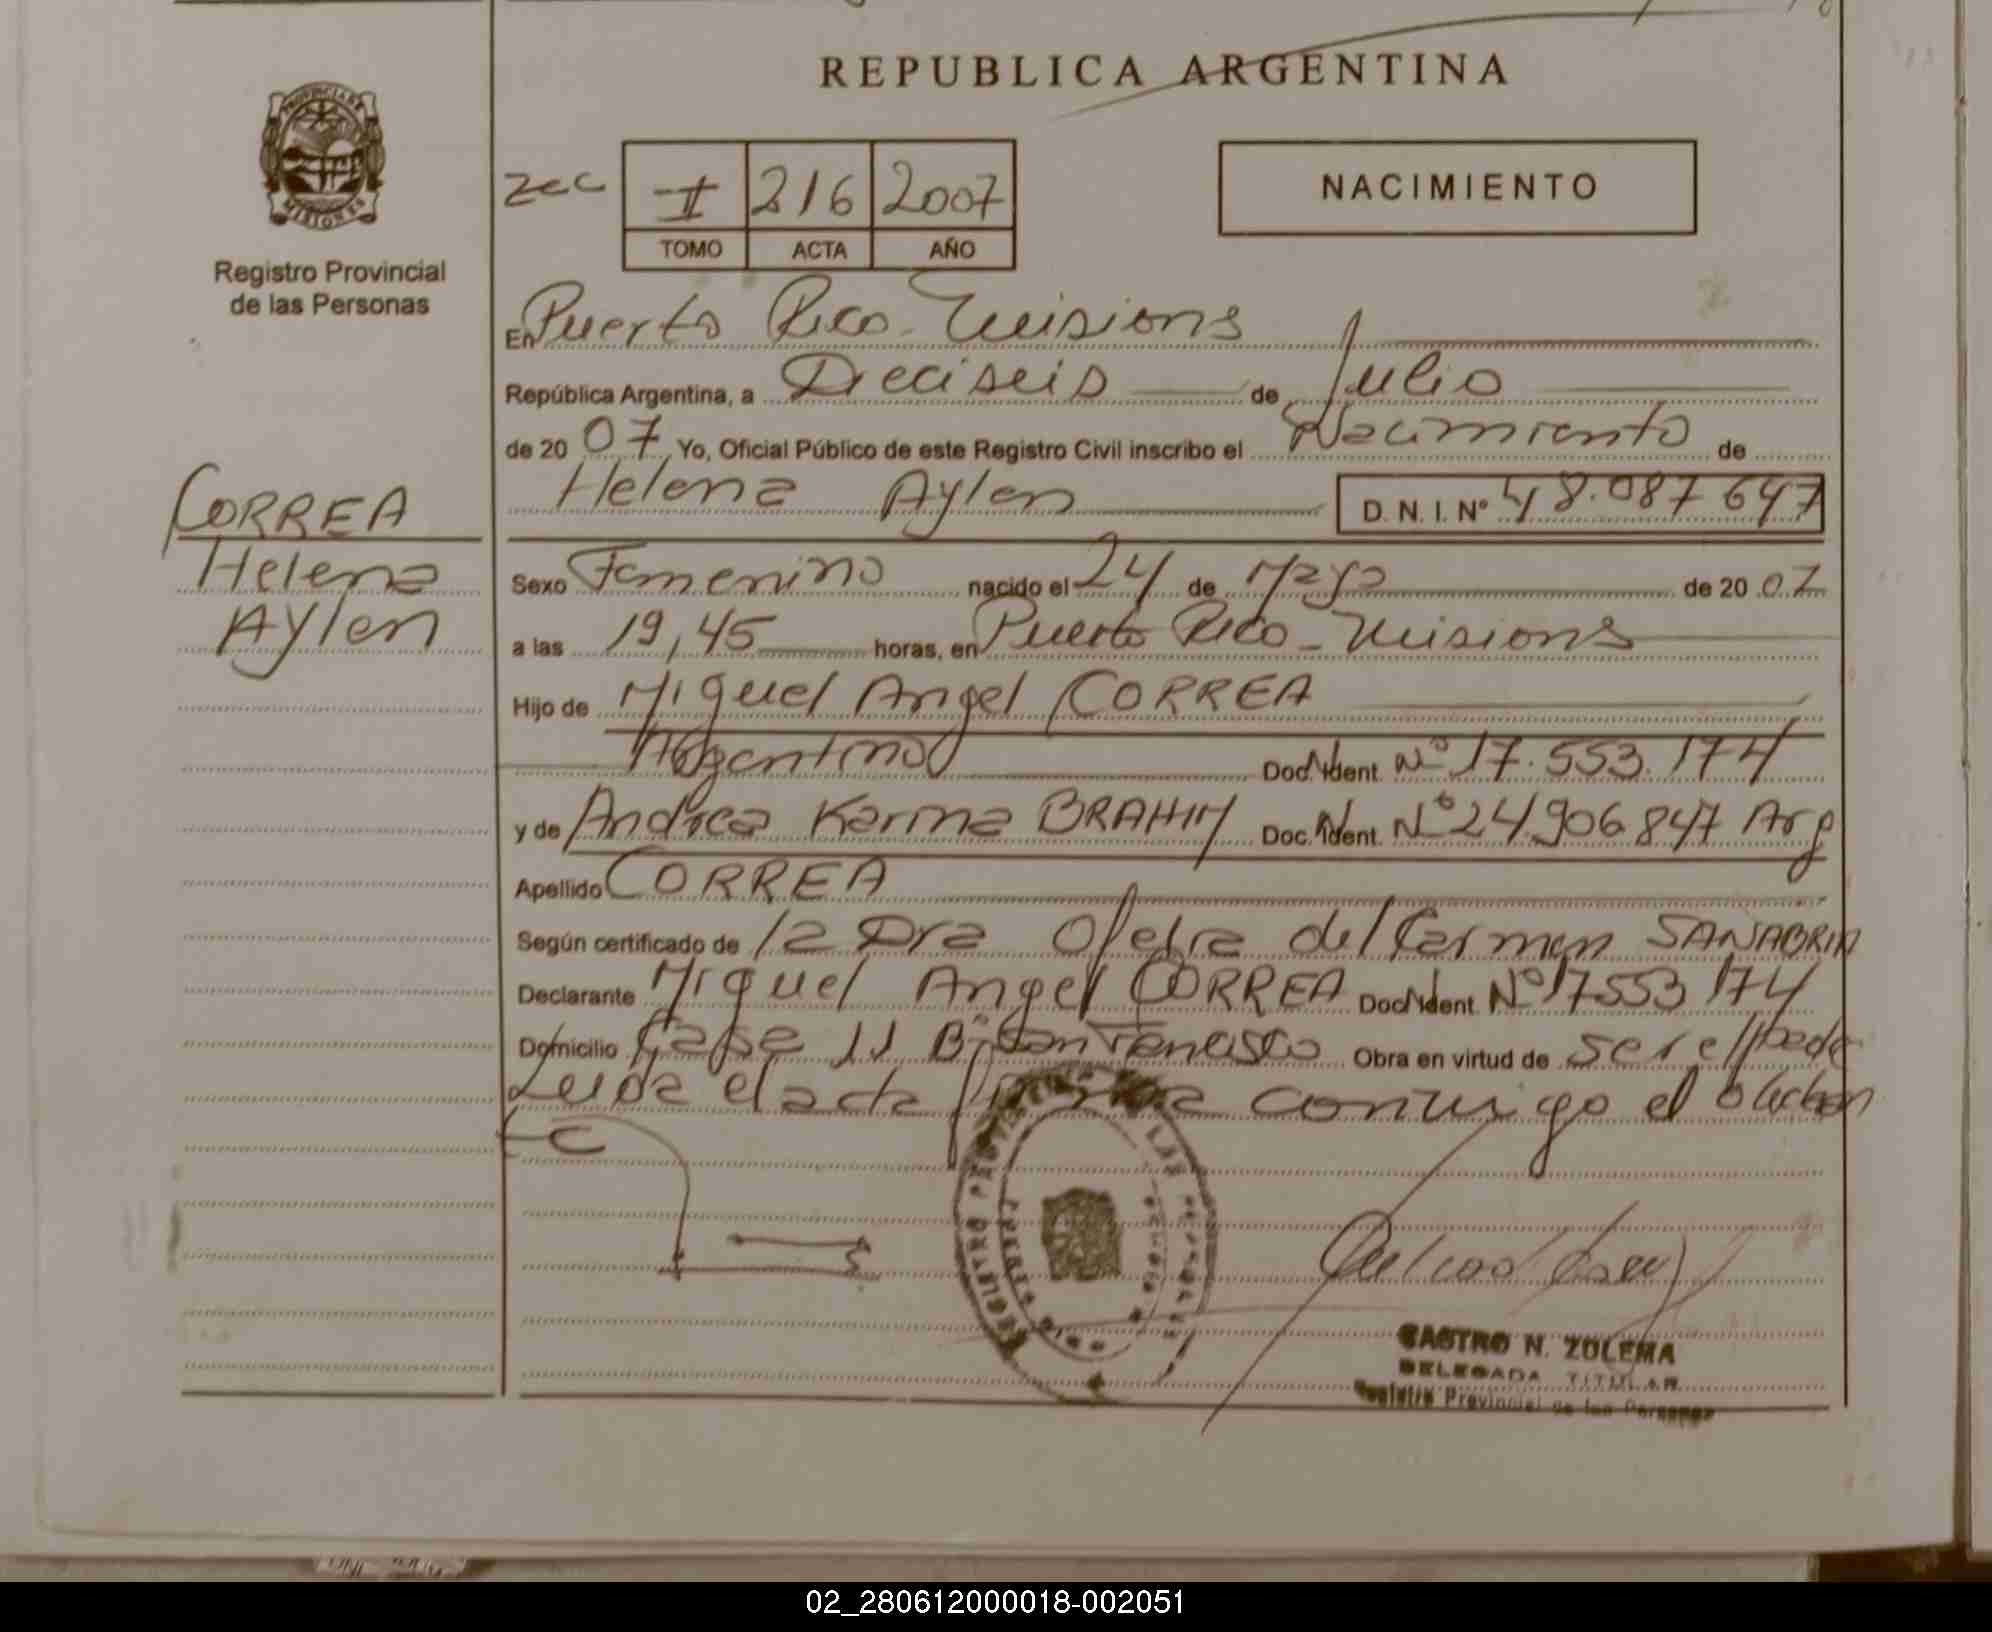 REPUBLICA ARGENTINA
PROVINCIA DE
MISIONES
Registro Provincial
de las Personas
zec
I 216 2007
TOMO ACTA AÑO
NACIMIENTO
En Puerto Rico - Misions
República Argentina, a Dieciseis de Julio
de 20 07 Yo, Oficial Público de este Registro Civil inscribo el Nacimiento de
Helena Aylen D. N. I. Nº 48.087 647
CORREA
Helena
Aylen
Sexo Femenino nacido el 24 de Mayo de 20 07
a las 19,45 horas, en Puerto Rico - Misions
Hijo de Miguel Angel CORREA
Argentino Doc. Ident. Nº 17.553.174
y de Andrea Karina BRAHIM Doc. Ident. Nº 24.906 847 Arg
Apellido CORREA
Según certificado de la Dra Ofelia del Carmen SANABRIA
Declarante Miguel Angel CORREA Doc. Ident. Nº 17553174
Domicilio Casa 11 Bº San Obra en virtud de ser el
Leida el acta conmigo el
CASTRO N. ZULEMA
DELEGADA TITULAR
Registro Provincial de las Personas
02_280612000018-002051